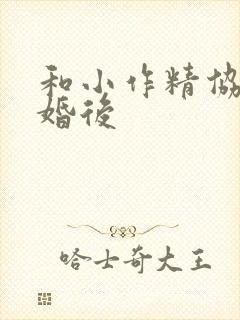 和小作精協
婚後
哈士奇大王